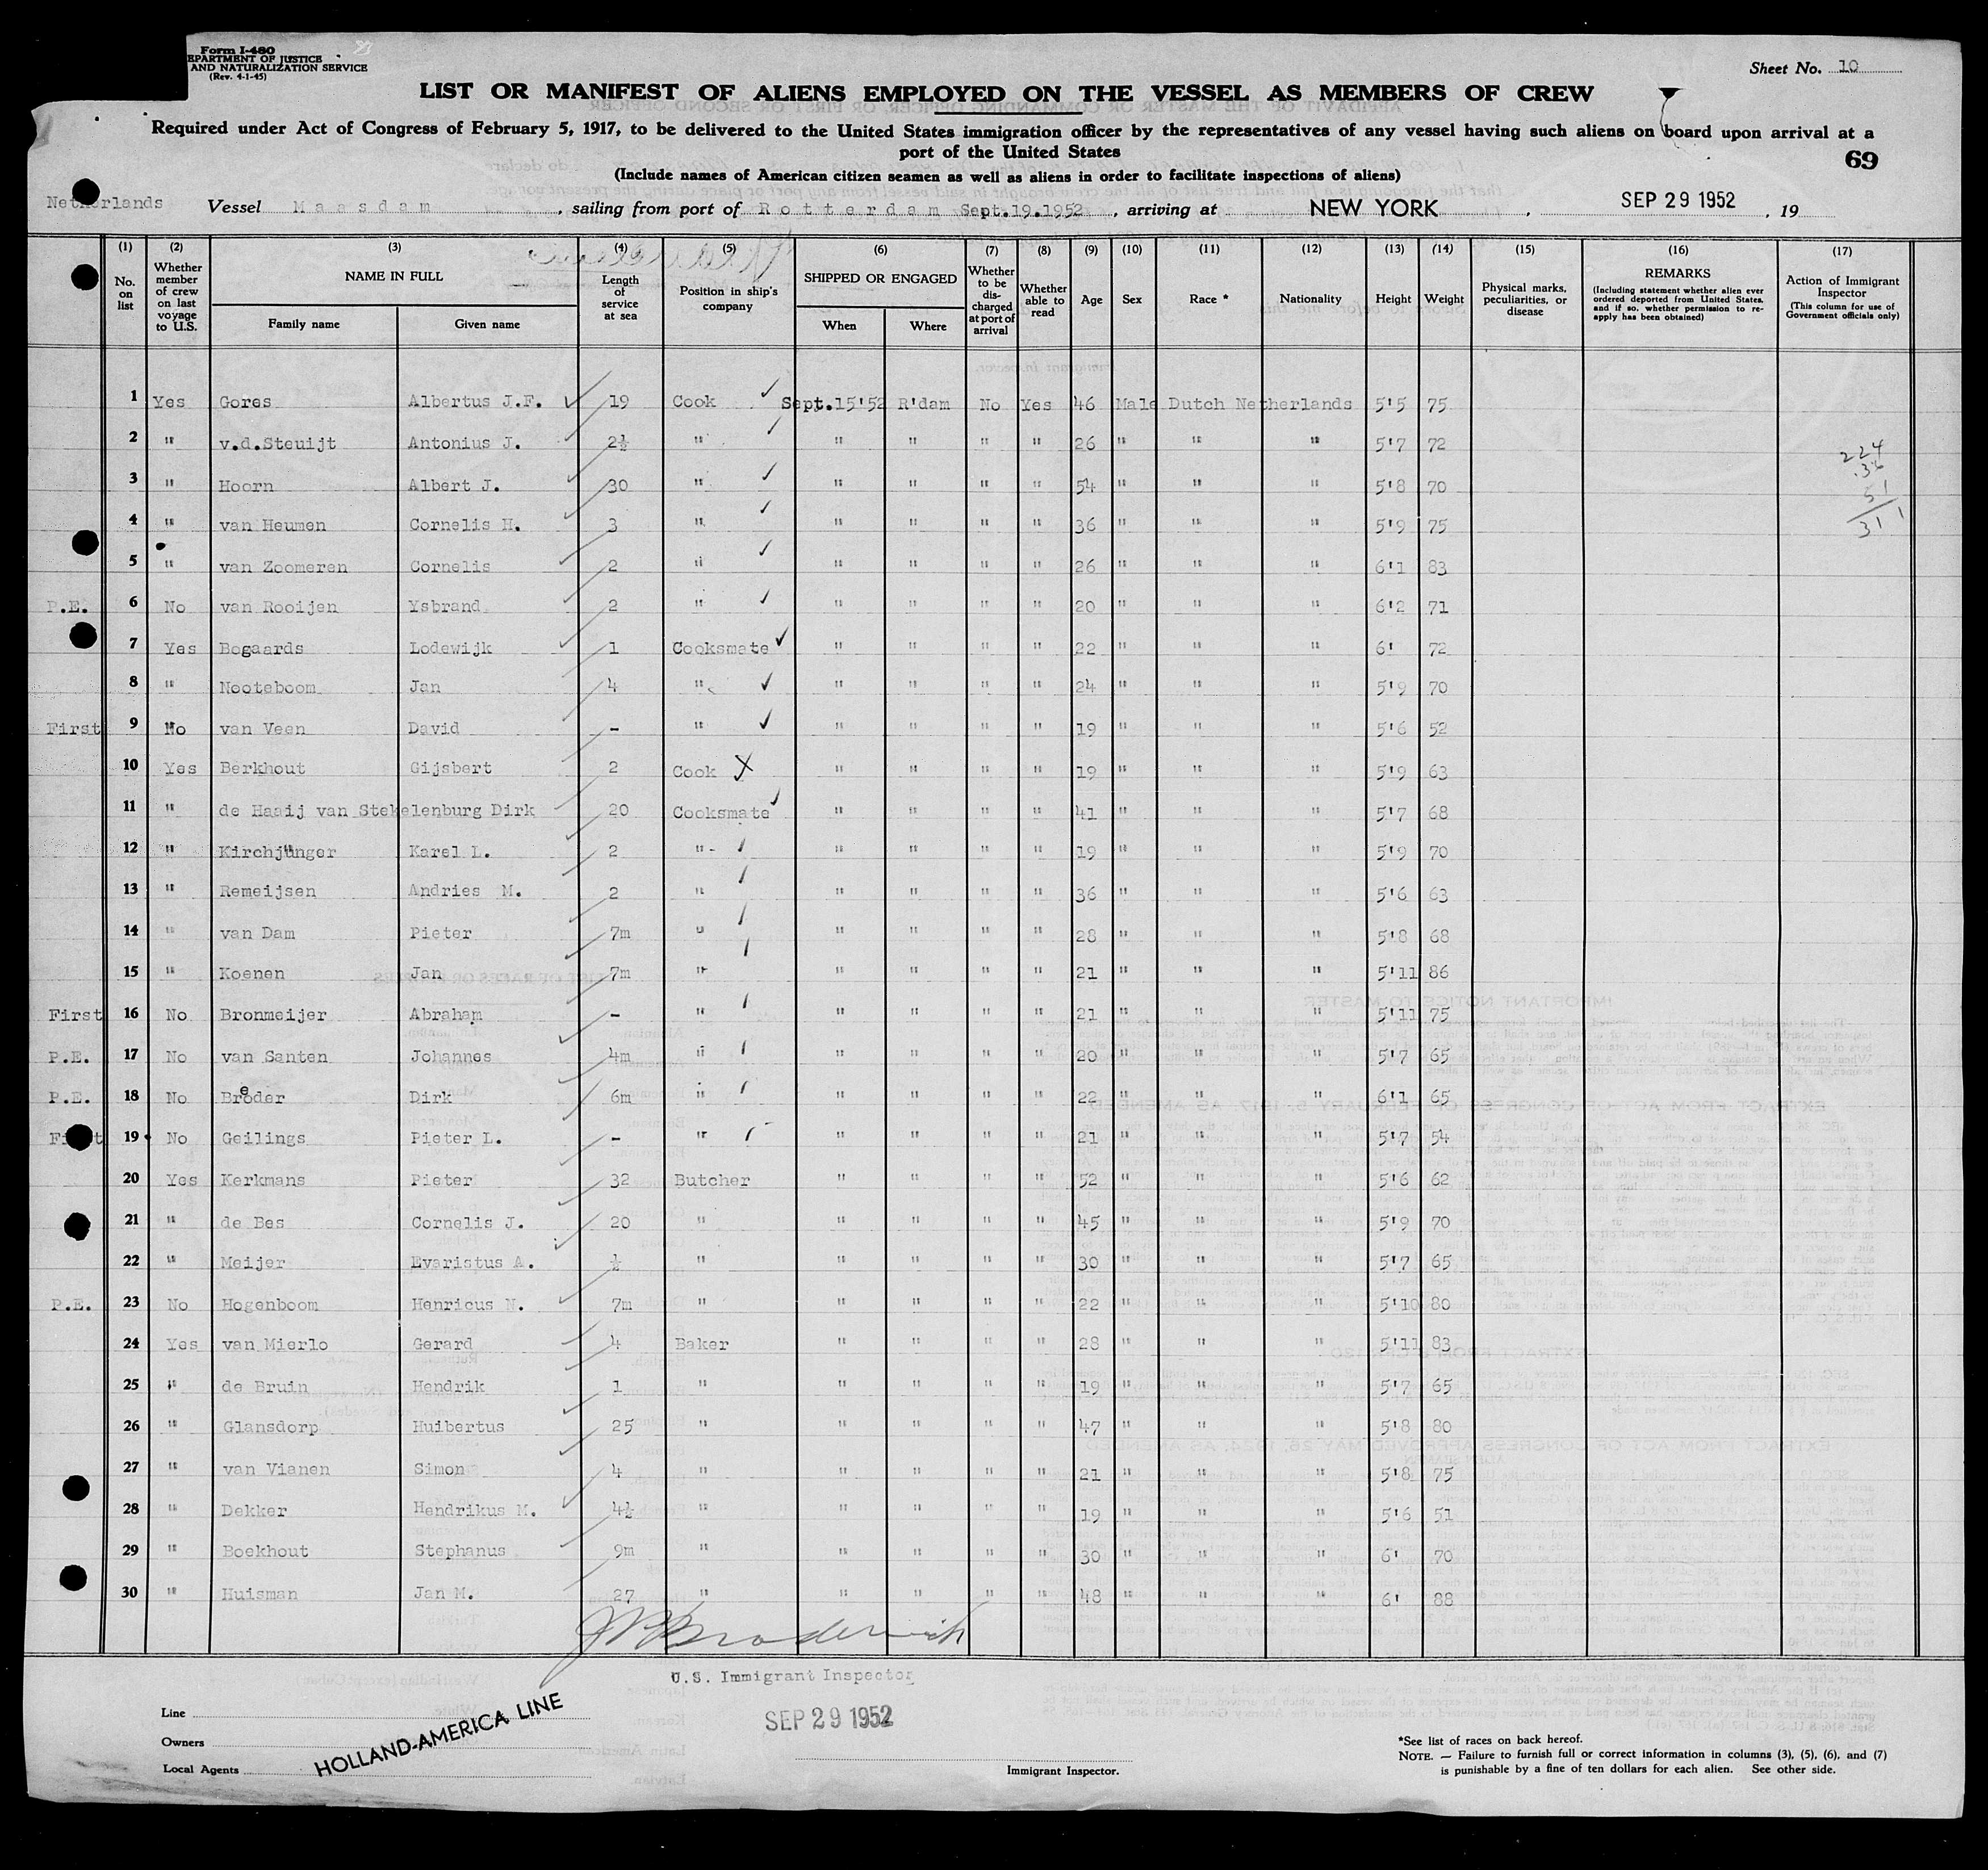 Form I-480
EPARTMENT OF JUSTICE
AND NATURALIZATION SERVICE
(Rev. 4-1-45)
Sheet No. 10
LIST OR MANIFEST OF ALIENS EMPLOYED ON THE VESSEL AS MEMBERS OF CREW
Required under Act of Congress of February 5, 1917, to be delivered to the United States immigration officer by the representatives of any vessel having such aliens on board upon arrival at a
port of the United States
69
(Include names of American citizen seamen as well as aliens in order to facilitate inspections of aliens)
Netherlands Vessel Maasdam, sailing from port of Rotterdam Sept.19.1952, arriving at NEW YORK, SEP 29 1952, 19
(1) (2) (3) (4) (5) (6) (7) (8) (9) (10) (11) (12) (13) (14) (15) (16) (17)
No. on list
Whether member of crew on last voyage to U.S.
NAME IN FULL
Family name
Given name
Length of service at sea
Position in ship's company
SHIPPED OR ENGAGED
When
Where
Whether to be discharged at port of arrival
Whether able to read
Age
Sex
Race *
Nationality
Height
Weight
Physical marks, peculiarities, or disease
REMARKS
(Including statement whether alien ever ordered deported from United States, and if so, whether permission to reapply has been obtained)
Action of Immigrant Inspector
(This column for use of Government officials only)
1 Yes Gores Albertus J.F. 19 Cook Sept.15'52 R'dam No Yes 46 Male Dutch Netherlands 5'5 75
2 " v.d.Steuijt Antonius J. 2½ " " " " " 26 " " " 5'7 72
3 " Hoorn Albert J. 30 " " " " " 54 " " " 5'8 70
4 " van Heumen Cornelis H. 3 " " " " " 36 " " " 5'9 75
5 " van Zoomeren Cornelis 2 " " " " " 26 " " " 6'1 83
P.E. 6 No van Rooijen Ysbrand 2 " " " " " 20 " " " 6'2 71
7 Yes Bogaards Lodewijk 1 Cooksmate " " " " 22 " " " 6' 72
8 " Nooteboom Jan 4 " " " " " 24 " " " 5'9 70
First 9 No van Veen David - " " " " " 19 " " " 5'6 52
10 Yes Berkhout Gijsbert 2 Cook " " " " 19 " " " 5'9 63
11 " de Haaij van Stekelenburg Dirk 20 Cooksmate " " " " 41 " " " 5'7 68
12 " Kirchjünger Karel L. 2 " " " " " 19 " " " 5'9 70
13 " Remeijsen Andries M. 2 " " " " " 36 " " " 5'6 63
14 " van Dam Pieter 7m " " " " " 28 " " " 5'8 68
15 " Koenen Jan 7m " " " " " 21 " " " 5'11 86
First 16 No Bronmeijer Abraham - " " " " " 21 " " " 5'11 75
P.E. 17 No van Santen Johannes 4m " " " " " 20 " " " 5'7 65
P.E. 18 No Breder Dirk 6m " " " " " 22 " " " 6'1 65
First 19 No Geilings Pieter L. - " " " " " 21 " " " 5'7 54
20 Yes Kerkmans Pieter 32 Butcher " " " " 52 " " " 5'6 62
21 " de Bes Cornelis J. 20 " " " " " 45 " " " 5'9 70
22 " Meijer Evaristus A. ½ " " " " " 30 " " " 5'7 65
P.E. 23 No Hogenboom Henricus N. 7m " " " " " 22 " " " 5'10 80
24 Yes van Mierlo Gerard 4 Baker " " " " 28 " " " 5'11 83
25 " de Bruin Hendrik 1 " " " " " 19 " " " 5'7 65
26 " Glansdorp Huibertus 25 " " " " " 47 " " " 5'8 80
27 " van Vianen Simon 4 " " " " " 21 " " " 5'8 75
28 " Dekker Hendrikus M. 4½ " " " " " 19 " " " 5'6 51
29 " Boekhout Stephanus 9m " " " " " 30 " " " 6' 70
30 " Huisman Jan M. 27 " " " " " 48 " " " 6' 88
224
36
51
311
U.S. Immigrant Inspector
SEP 29 1952
Line
Owners
Local Agents
HOLLAND-AMERICA LINE
Immigrant Inspector.
*See list of races on back hereof.
NOTE. — Failure to furnish full or correct information in columns (3), (5), (6), and (7)
is punishable by a fine of ten dollars for each alien. See other side.